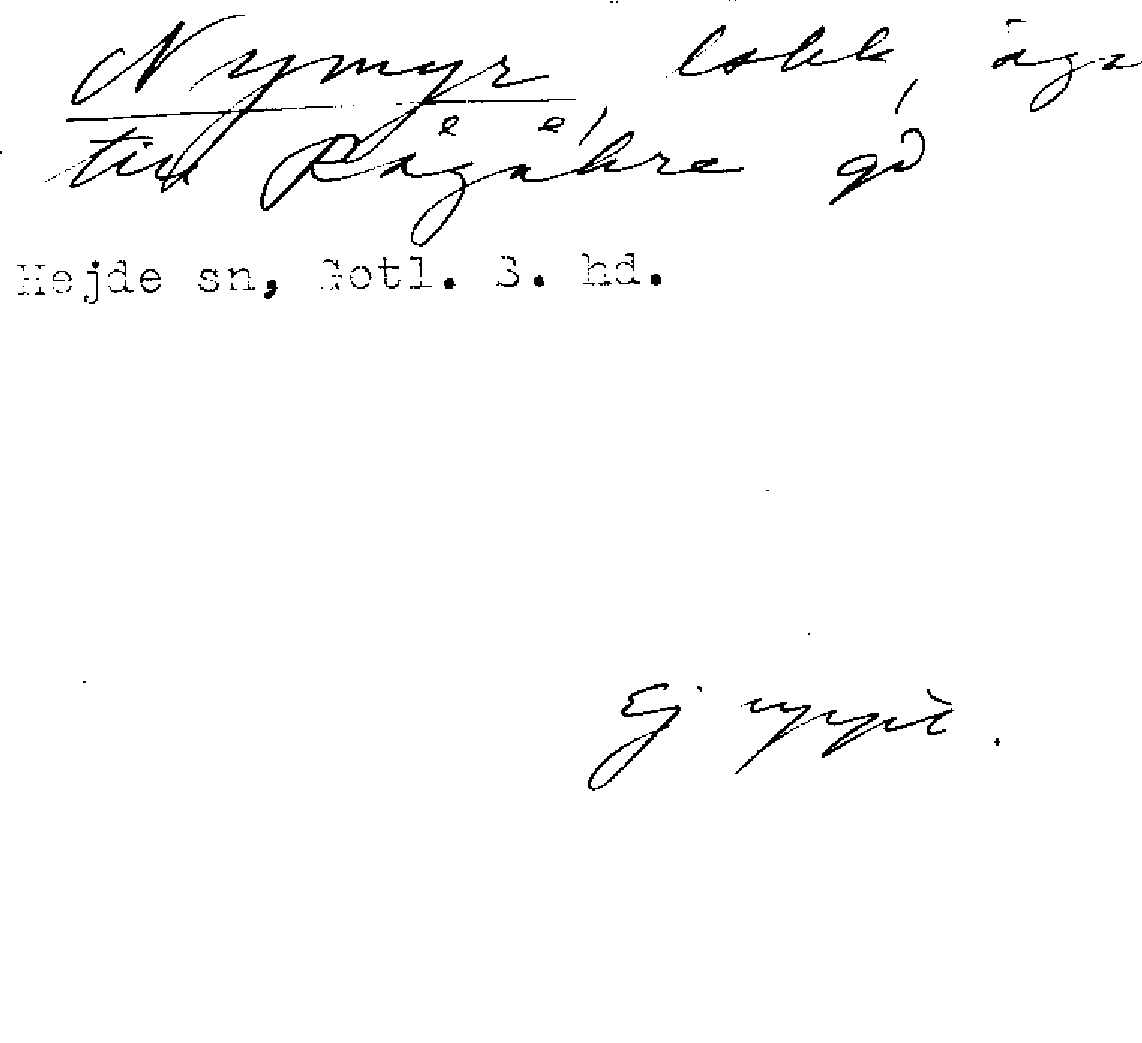 Nymyr, lokk, äga
till Rågåkre gå
Hejde sn, Gotl. S. hd.
Ej uppt.